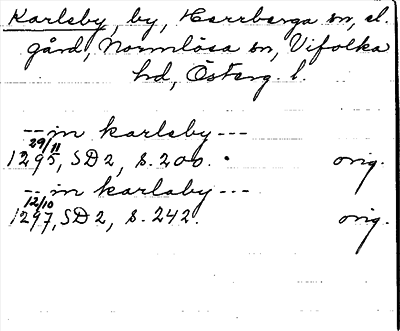 Karlsby, by, Herrberga sn, el.
gård, Normlösa sn, Vifolka
hd, Österg. l.
-- in karlsby ---
29/11
1295, SD2, s. 200. orig.
-- in karlaby ---
12/10
1297, SD2, s. 242. orig.